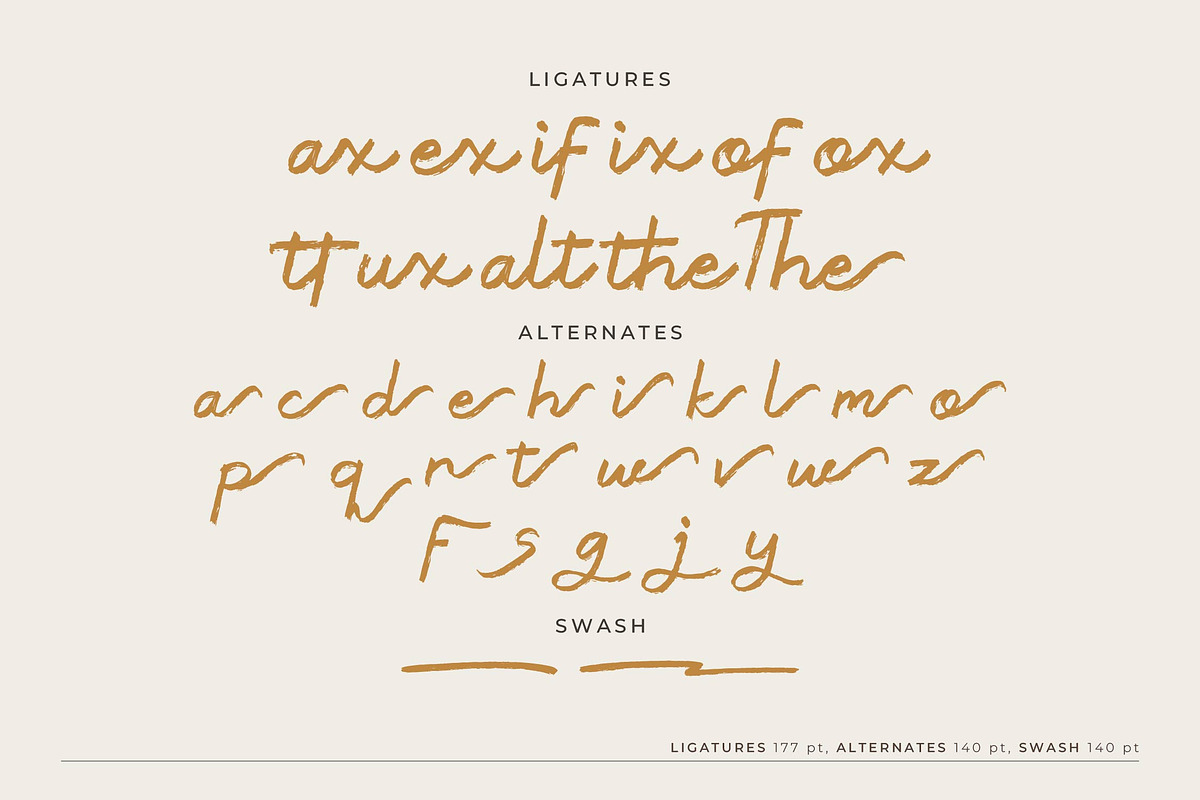 LIGATURES
ax ex if ix of ox
tt ux alt the The
ALTERNATES
a c d e h i k l m o
p q n t w v w z
F s g j y
SWASH
LIGATURES 177 pt, ALTERNATES 140 pt, SWASH 140 pt